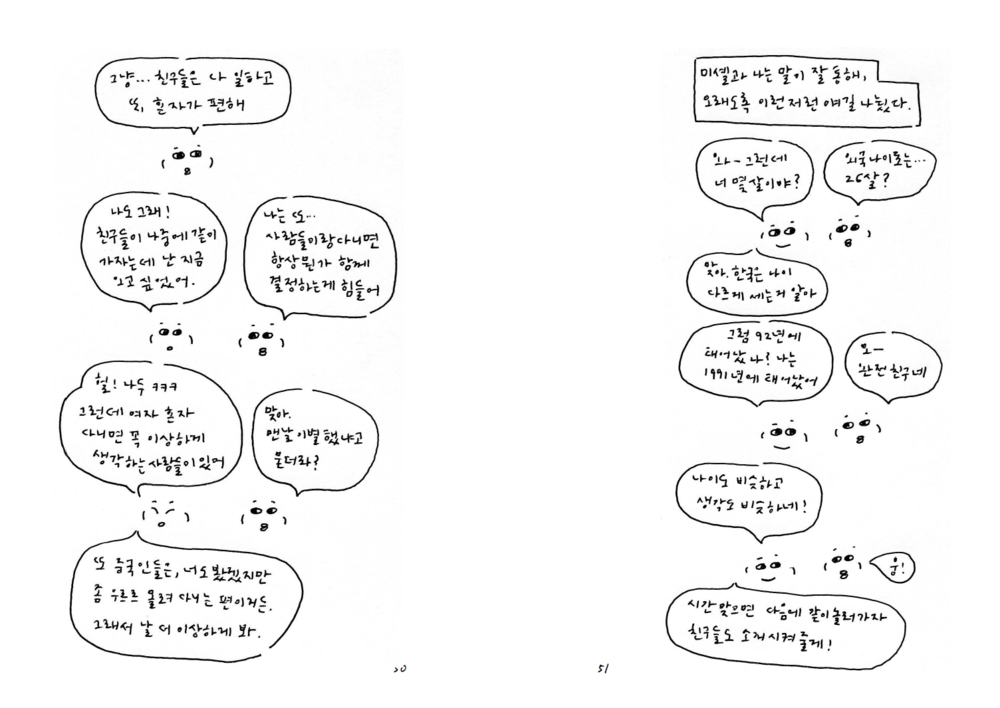 그냥... 친구들은 다 일하고
또, 혼자가 편해
나도 그래!
친구들이 나중에 같이
가자는데 난 지금
오고 싶었어.
나는 또...
사람들이랑 다니면
항상 뭔가 함께
결정하는게 힘들어
헐! 나두 ㅋㅋㅋ
그런데 여자 혼자
다니면 꼭 이상하게
생각하는 사람들이 있어
맞아.
맨날 이별했냐고
묻더라?
또 중국인들은, 너도 봤겠지만
좀 우르르 몰려 다니는 편이거든.
그래서 날 더 이상하게 봐.
50
미셸과 나는 말이 잘 통해,
오래도록 이런저런 얘길 나눴다.
와- 그런데
너 몇 살이야?
외국나이로는...
26살?
맞아. 한국은 나이
다르게 세는거 알아
그럼 92년에
태어났나? 나는
1991년에 태어났어
오-
완전 친구네
나이도 비슷하고
생각도 비슷하네!
웅!
시간 맞으면 다음에 같이 놀러가자
친구들도 소개시켜 줄게!
51